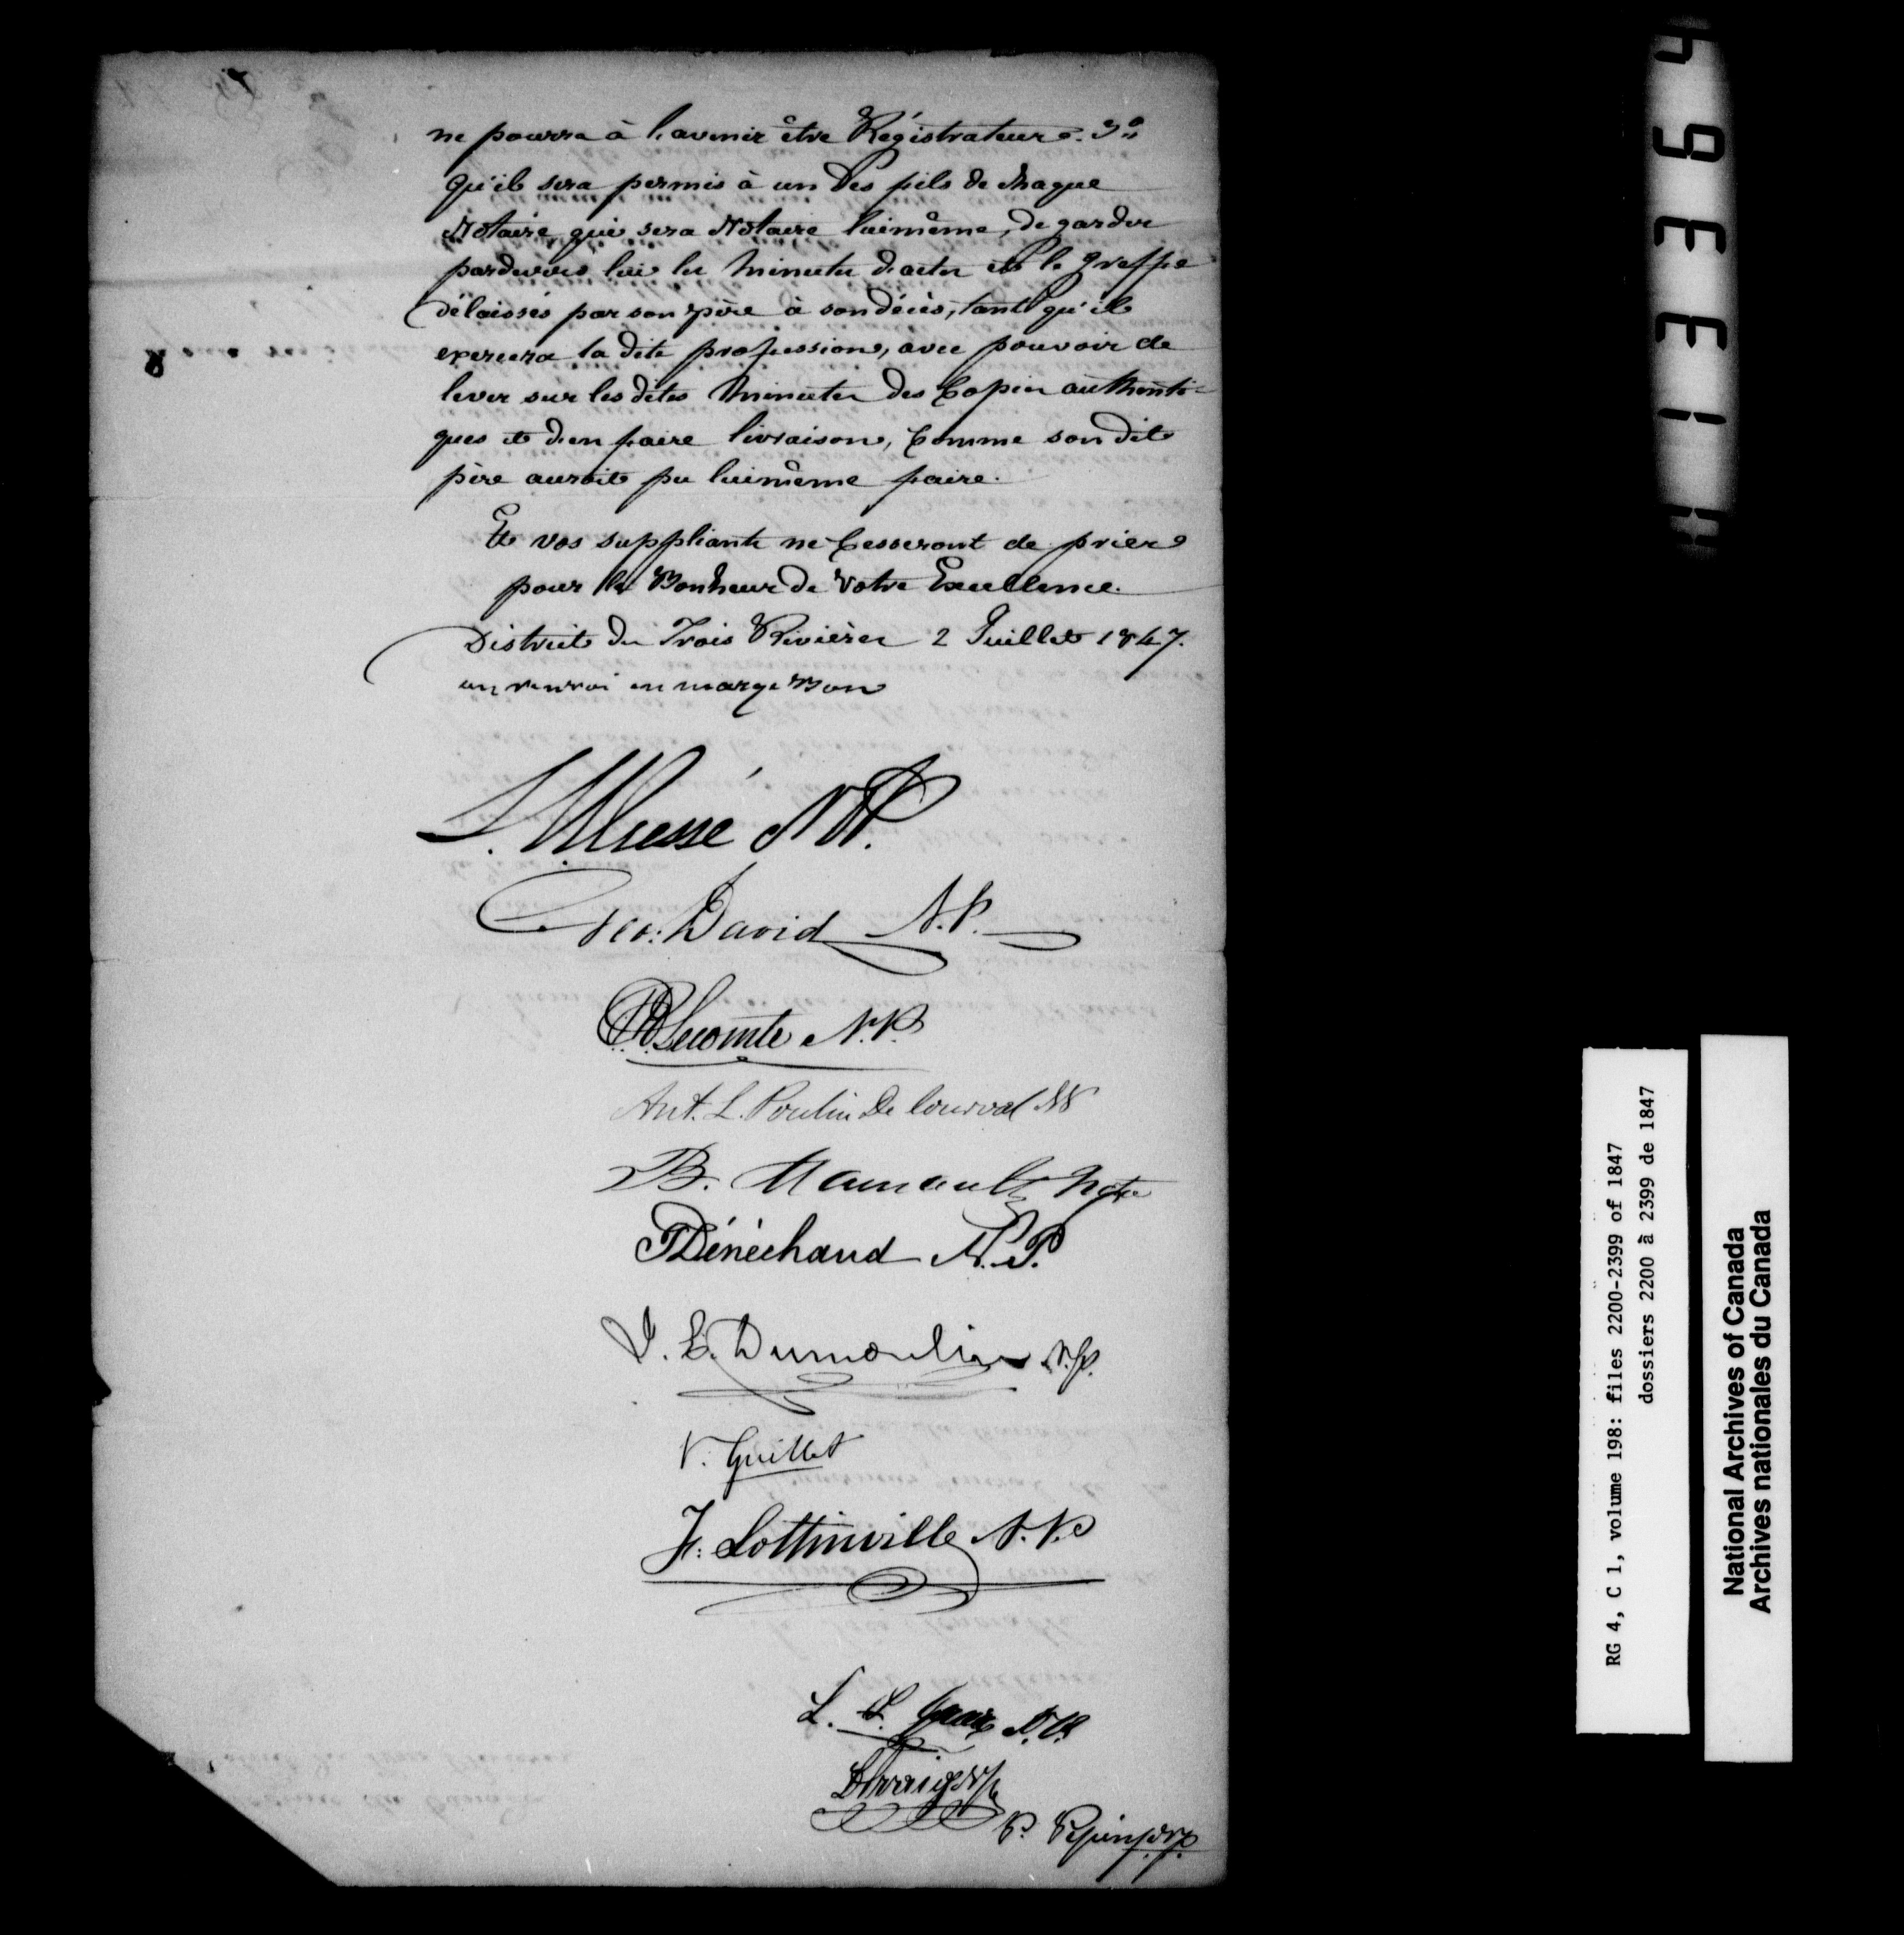 ne pourra à l'avenir être Régistrateur. 3º
Qu'il sera permis à un des fils de chaque
Notaire qui sera Notaire luimême, de garder
pardevers lui les minutes d'actes et le Greffe
délaissés par son père à son décès, tant qu'il
exercera la dite profession, avec pouvoir de
lever sur les dites minutes des Copies authenti-
ques et d'en faire livraison, Comme son dit
père auroit pu luimême faire.
Et vos suppliants ne Cesseront de prier
pour le Bonheur de Votre Excellence.
District des Trois Rivières 2 Juillet 1847.
un renvoi en marge Bon
NP.
Geo: David N.P.
Lecomte N.P.
Ant. L. Poulin De Courval NP
B. Hamault Notre
Dénéchaud N.P.
J. E. Dumoulin N.P.
V. Guillet
F. Lottinville N.P.
L. L. N.P.
P. Pepin N.P.
13364
RG 4, C 1, volume 198: files 2200-2399 of 1847
dossiers 2200 à 2399 de 1847
National Archives of Canada
Archives nationales du Canada